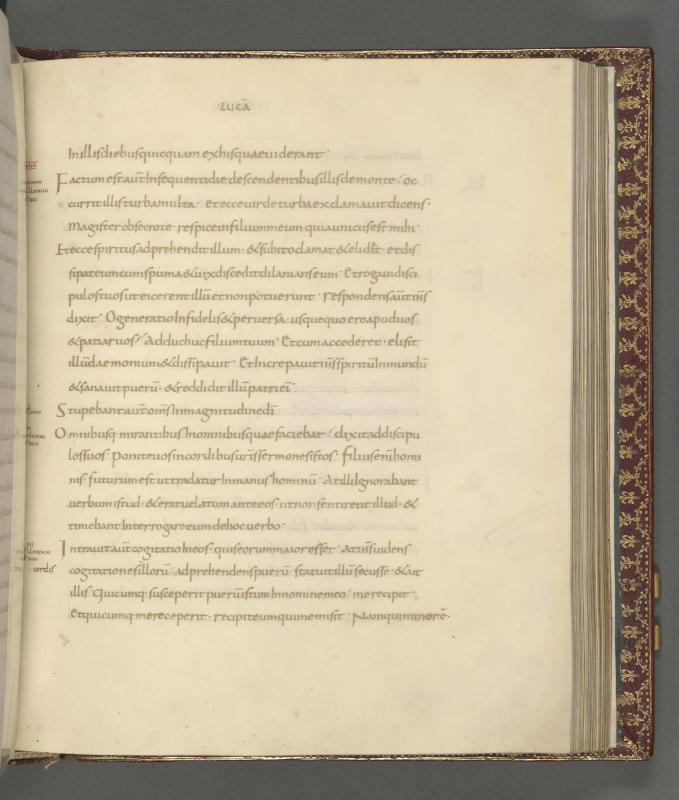 LUCĀ
In illis diebus quicquam ex his quae viderant·
Factum est aut̄ In sequenti die descendentibus illis de monte· oc
currit illis turba multa· et ecce vir de turba exclamavit dicens·
Magister obsecro te respice in filium meum quia unicus est mihi·
Et ecce spiritus adprehendit illum· & subito clamat & elidit· et dis
sipat eum cum spuma & vix discedit dilanians eum· Et rogavi disci
pulos tuos ut eicerent illū et non potuerunt· Respondens aut̄ ih̄s
dixit· O generatio Infidelis & perversa· usquequo ero apud vos
& patiar vos· Adduc huc filium tuum· Et cum accederet· elisit
illū daemonium & dissipavit· Et Increpavit ih̄s sp̄iritū Inmundū
& sanavit puerū· & reddidit illū patri ei·
Stupebant aut̄ om̄s In magnitudine dī
Omnibusq· mirantibus In omnibus quae faciebat· dixit ad discipu
los suos· Ponite vos in cordibus vūris sermones istos· Filius enī homi
nis futurum est ut tradatur In manus hominū· At illi Ignorabant
verbum istud· & erat velatum ante eos· ut non sentirent illud· &
timebant Interrogare eum de hoc verbo·
Intravit aut̄ cogitatio In eos· quis eorum maior esset· At ih̄s videns
cogitationes illorū· adprehendens puerū statuit illū secus se· & ait
cordis
illis Quicumq· susceperit puerū istum In nomine meo· me recipit·
Et quicumq· me receperit· recipit eum qui me misit· Nam qui minor ē·